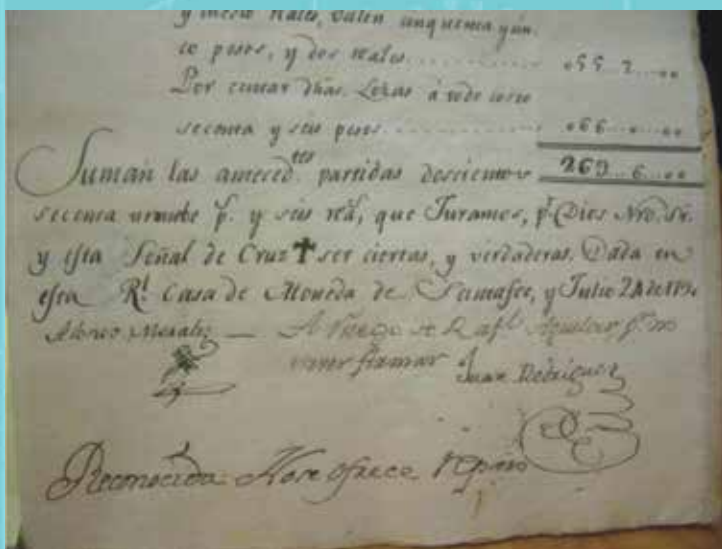 y medio reales, valen cinquenta y cin-
co pesos, y dos reales. . . . . . . . . . . . o55..2...oo
Por cuntar dhas. Lozas á todo costo
secenta y seis pesos. . . . . . . . . . . . . o66...o...oo
Suman las anteced.tes partidas doscientos 269...6...oo
secenta y nuebe p.s y seis rea.s, que Juramos, p.r Dios Nro. Sr.
y esta Señal de Cruz ✝ ser ciertas, y verdaderas. Dada en
esta R.l Casa de Moneda de Santafee, y Julio 24 de
Morales — A Ruego de Raf.l Aguilar, p.r no
saver firmar Juan Rodriguez
Reconocida No se ofrece reparo